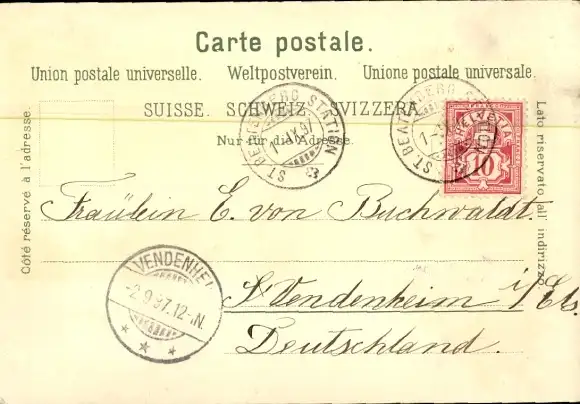 Carte postale.
Union postale universelle. Weltpostverein. Unione postale universale.
SUISSE. SCHWEIZ. SVIZZERA.
Nur für die Adresse.
Côté réservé à l'adresse.
Lato riservato all' indirizzo.
ST. BEATENBERG STATION
1. IX. 97
ST. BEATENBERG
HELVETIA
10
Fräulein E. von Buchwaldt.
VENDENHEI
-2.9.97.12-1N.
Vendenheim i/Els.
Deutschland.